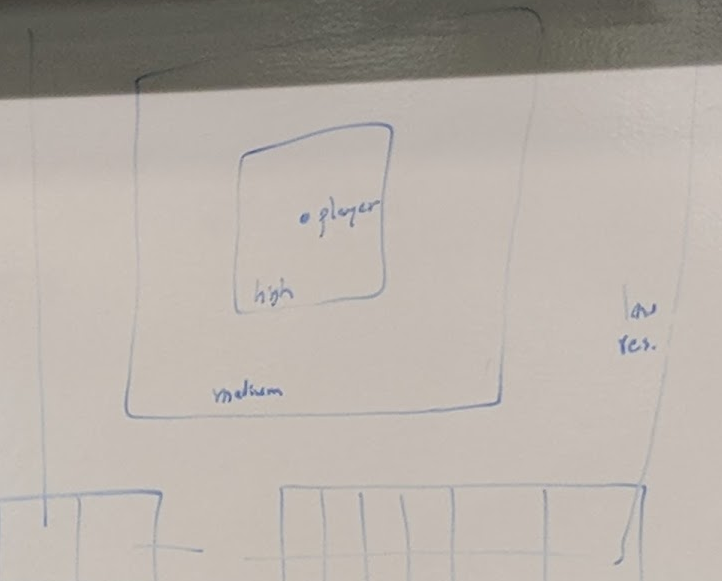 player
high
medium
low
res.